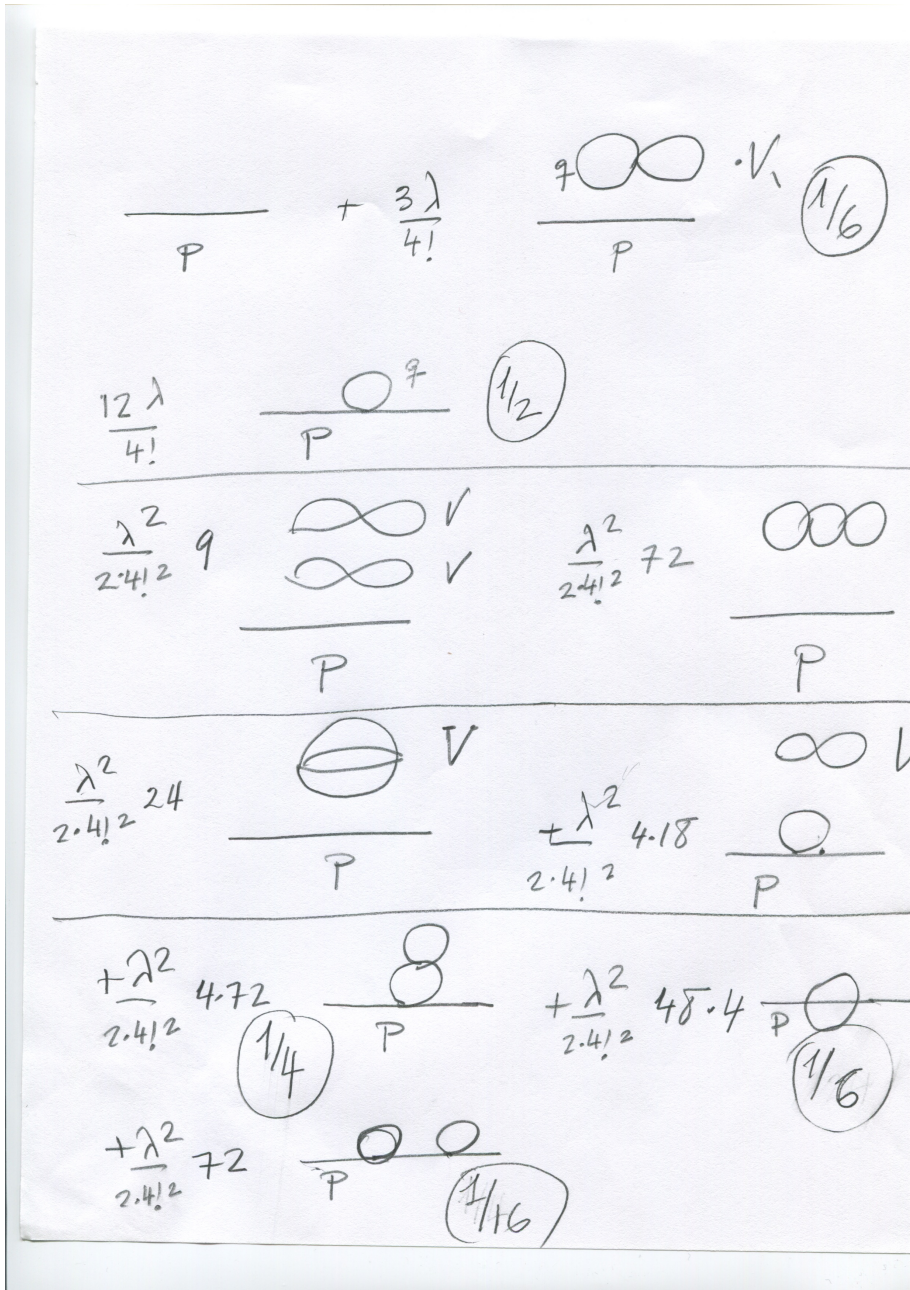 P + 3λ/4! q P ·V 1/6
12 λ/4! P q 1/2
λ²/2·4!² 9 V V P λ²/2·4!² 72 P
λ²/2·4!² 24 V P + λ²/2·4!² 4·18 V P
+ λ²/2·4!² 4·72 P 1/4 + λ²/2·4!² 48·4 P 1/6
+ λ²/2·4!² 72 P 1/16